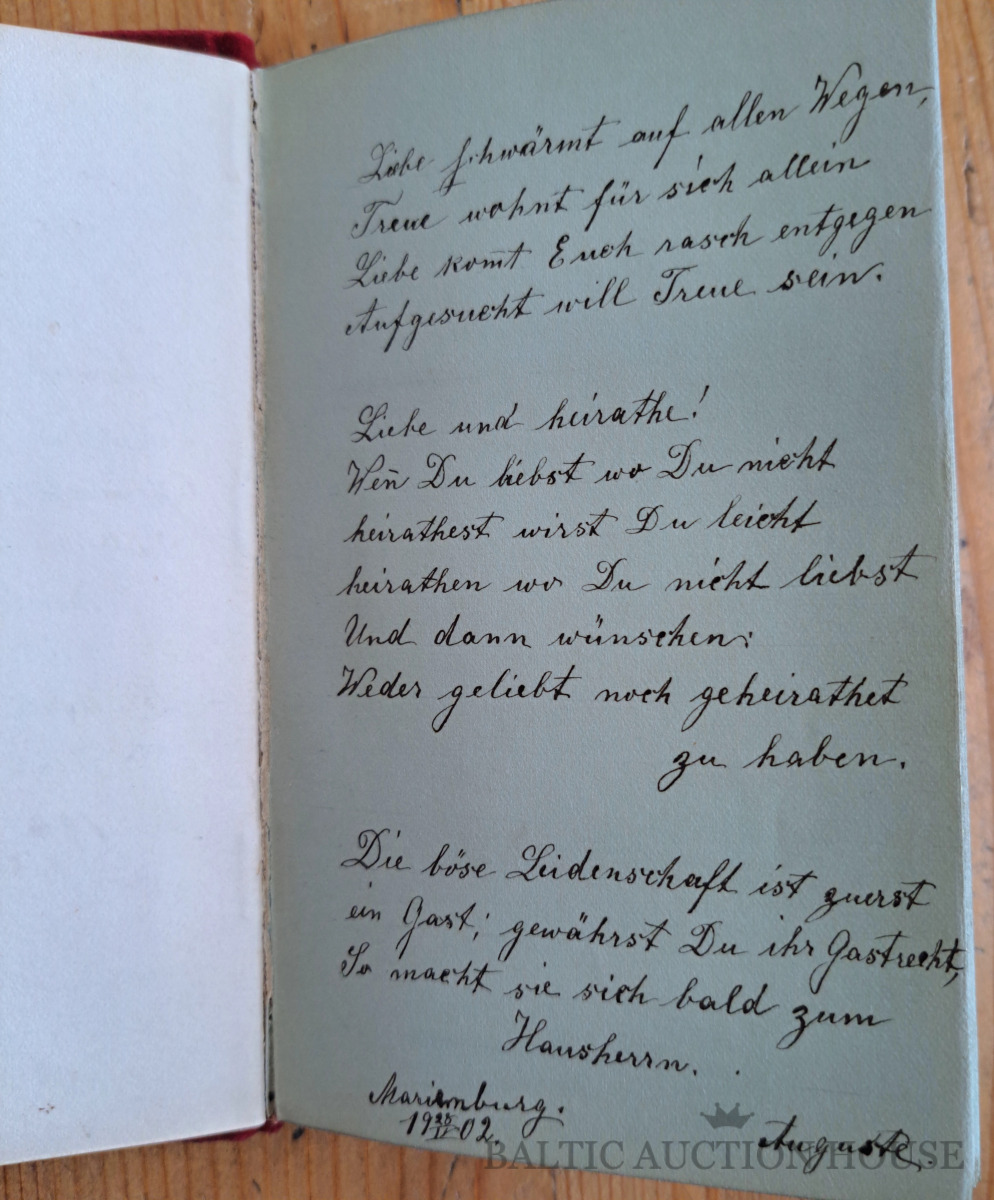 Liebe schwärmt auf allen Wegen,
Treue wohnt für sich allein
Liebe kom̄t Euch rasch entgegen
Aufgesucht will Treue sein.
Liebe und heirathe!
Wen̄ Du liebst wo Du nicht
heirathest wirst Du leicht
heirathen wo Du nicht liebst
Und dann wünschen:
Weder geliebt noch geheirathet
zu haben.
Die böse Leidenschaft ist zuerst
ein Gast; gewährst Du ihr Gastrecht,
So macht sie sich bald zum
Hausherrn.
Marienburg.
19 02.
Auguste.
BALTIC AUCTION HOUSE